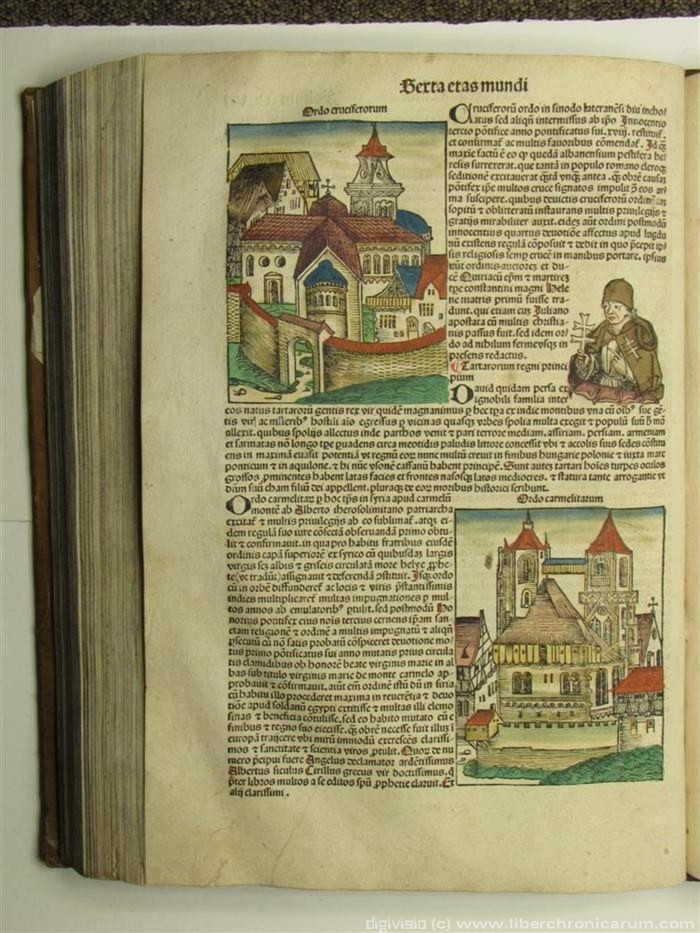 Sexta etas mundi
Ordo cruciferorum
Cruciferorū ordo in sinodo lateranēsi diu incho/
atus sed aliqñ intermissus ab ip̄o Innocentio
tercio pōtifice anno pontificatus sui .xviij. restituit᷑.
et confirmat᷑ ac multis fauoribus cōmendat᷑. Id q̄
maxie factū ē eo ꝙ quedā albanensium pestifera he/
resis surrexerat. que tantā in populo romano cleroqꝫ
seditionē excitauerat
pōtifex ip̄e multos cruce signatos impulit
ma suscipere. quibus deuictis cruciferorū ordinē
sopitū ⁊ oblitteratū instaurans multis priuilegijs ⁊
gratijs mirabiliter auxit. eidēꝫ aūt ordini postmodū
innocentius quartus deuotiōe affectus apud lugdu
nū existens regulā cōposuit ⁊ dedit in quo p̄cepit ip̄/
sis religiosis semꝑ crucē in manibus portare. ipsius
ordinis auctores et du/
cē Quiriacū ep̄m ⁊ martirez
tꝑe constantini magni Hele
ne matris primū fuisse tra/
dunt. qui etiam cuꝫ Juliano
apostata cū multis christia/
nis passus fuit. sed idem or/
do ad nihilum fermevsqꝫ in
presens redactus.
Tartarorum regni princi
pium
Dauid quidam persa ex
ignobili familia inter
eos natus tartarorū gentis rex vir quidē magnanimus
ex indie montibus vna cū oīb᷒ sue gē/
tis viris ac mulierib᷒ hostili aīo egressus ꝑ vicinas quasqꝫ vrbes spolia multa exegit ⁊ populū
allexit. quibus spolijs allectus inde parthos venit ⁊ pari terrore mediam, assiriam, persiam, armeniam
et sarmatas nō longo tꝑe
meotidis paludis littore concessit vbi ⁊ accolis suas sedes cōstitu
ens in maximā euasit potentiā vt regnū eoꝝ nunc multū creuit in finibus hungarie polonie ⁊ iuxta mare
ponticum ⁊ in aquilone. ⁊ hi nūc vsonē cassanū habent principē. Sunt autez tartari hoīes turpes oculos
grossos ꝓminentes habent latas facies et frontes nasosqꝫ latos mediocres. ⁊ statura tante arrogantie vt
dn̄m suū cham filiū dei appellent. pluraqꝫ de eoꝝ moribus historici scribunt.
Ordo carmelitarum
Ordo carmelitaꝝ ꝑ hoc tp̄s in syria apud carmelū
montē ab Alberto iherosolimitano patriarcha
excitat᷑ ⁊ multis priuilegijs ab eo sublimat᷑. atqꝫ ei/
dem regulā suo iure cōfectā obseruandā primo obtu/
lit ⁊ confirmauit. in qua pro habitu fratribus eiusdē
ordinis capā superiorē ex syrico cū quibusdaꝫ largis
virgis scꝫ albis ⁊ griseis circulatā more helye ꝓphe/
te (vt tradūt) assignauit ⁊ deferendā
ordo
cū in orbē diffunderet᷑ ac locis ⁊ viris p̄stantissimis
indies multiplicaret᷑ multas impugnationes ꝑ mul/
tos annos ab emulatorib᷒ ꝑtulit. sed postmodū Ho
norius pontifex eius noīs tercius cernens ip̄am san/
ctam religionē ⁊ ordinē a multis impugnatū ⁊ aliqñ
ꝓsecutū cū nō satis probatū cōspiceret deuotione mo/
tus primo pōtificatus sui anno mutatis prius circula
tis clamidibus ob honorē beate virginis marie in al
bas sub titulo virginis marie de monte carmelo ap/
probauit ⁊ cōfirmauit. aūt em̄ ordinē istū dū in siria
cū habitu illo procederet maxima in reuerētia ⁊ deuo/
tiōe apud soldanū egypti extitisse ⁊ multas illi elemo
sinas ⁊ beneficia cōtulisse. sed eo habito mutato eū e
finibus ⁊ regno suo eiecisse. qꝫ obrē necesse fuit illuꝫ i
europā traijcere vbi mirū immodū excrescēs clarissi/
mos ⁊ sanctitate ⁊ scientia viros ꝓtulit. Quoꝝ de nu
mero p̄cipui fuere Angelus declamator ardētissimus
Albertus siculus Cirillus grecus vir doctissimus. q̇
p̄ter libros multos a se editos spū ꝓphetie claruit. Et
alij clarissimi.
digivisio (c) www.liberchronicarum.com